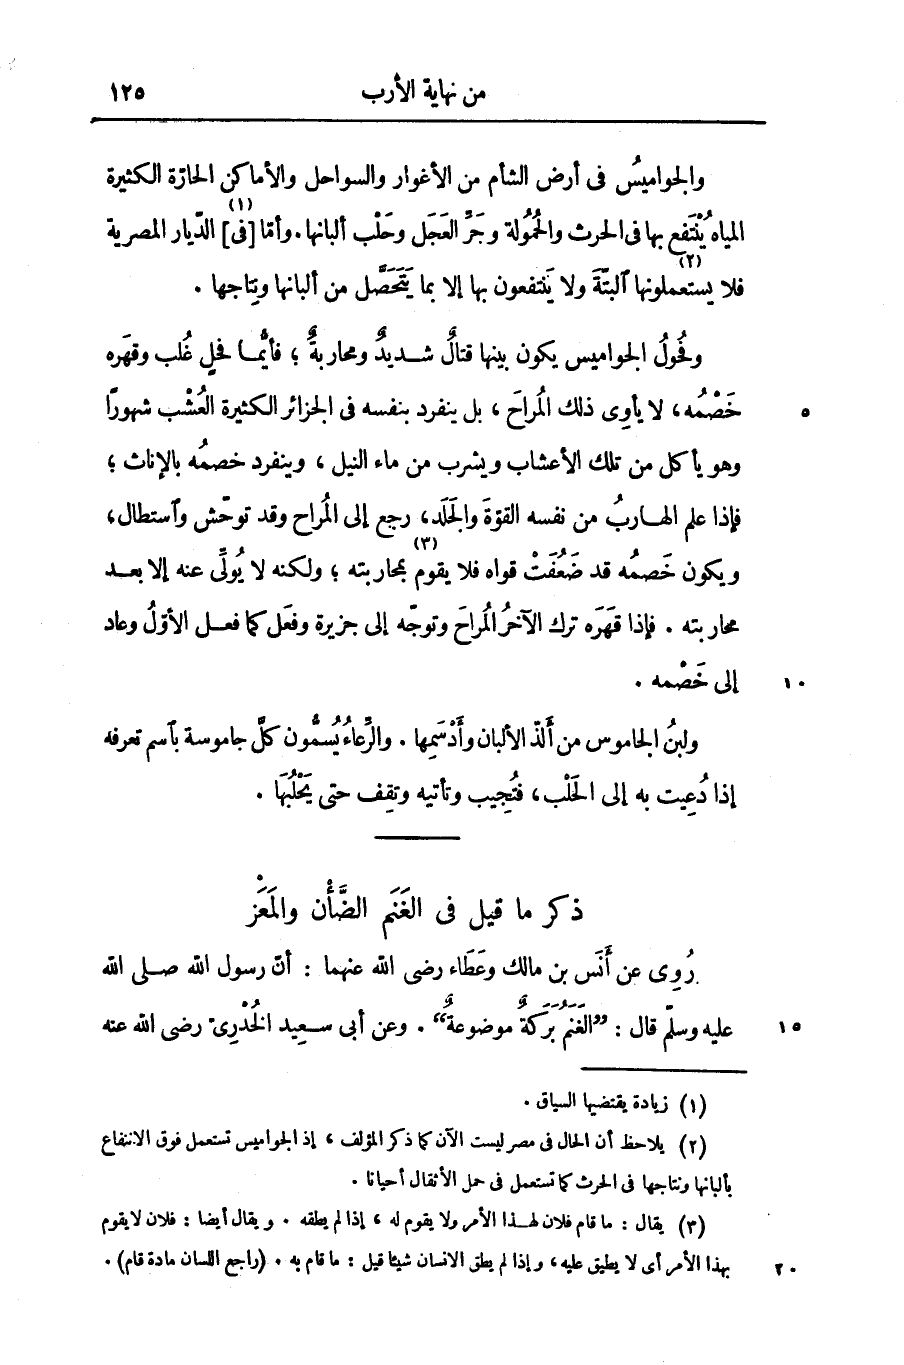 من نهاية الأرب ١٢٥
والجواميسُ فى أرض الشأم من الأغوار والسواحل والأماكن الحارّة الكثيرة
المياه يُنْتَفع بها فى الحرث والحُمُولة وجَرِّ العَجَل وحَلْب ألبانها. وأمّا [فى](١) الدّيار المصرية
فلا يستعملونها(٢) ٱلبتّةَ ولا يَنتفعون بها إلا بما يَتَحَصَّل من ألبانها ونِتاجها .
وفُحُولُ الجواميس يكون بينها قتالٌ شديدٌ ومحاربةٌ ؛ فأيُّما فحلٍ غُلب وقهَره
خَصْمُه، لا يأوِى ذلك المُراحَ ، بل ينفرد بنفسه فى الجزائر الكثيرة العُشْب شهورًا ٥
وهو يأكل من تلك الأعشاب ويشرب من ماء النيل ، وينفرد خصمُه بالإناث ؛
فإذا علم الهاربُ من نفسه القوّةَ والجَلَد، رجع إلى المُراح وقد توحّش وٱستطال،
ويكون خَصمُه قد ضَعُفَتْ قواه فلا يقوم(٣) بمحاربته ؛ ولكنه لا يُولِّى عنه إلا بعد
محاربته . فإذا قهَرَه ترك الآخرُ المُراحَ وتوجّه إلى جزيرة وفعَل كما فعل الأوّلُ وعاد
إلى خَصْمه . ١٠
ولبنُ الجاموس من أَلذّ الألبان وأَدْسَمِها . والرِّعاءُ يُسمُّون كلَّ جاموسة بٱسم تعرفه
إذا دُعِيت به إلى الحَلْب، فتُجيب وتأتيه وتقِف حتى يَحْلُبَها .
ذكر ما قيل فى الغَنَم الضَّأْن والمَعَزْ
رُوِى عن أَنَس بن مالك وعَطَاء رضى الله عنهما : أنّ رسول الله صلى الله
عليه وسلّم قال : "الغنمُ بَرَكةٌ موضوعةٌ" . وعن أبى سعِيد الخُدْرِىّ رضى الله عنه ١٥
(١) زيادة يقتضيها السياق .
(٢) يلاحظ أن الحال فى مصر ليست الآن كما ذكر المؤلف ، إذ الجواميس تستعمل فوق الانتفاع
بألبانها ونتاجها فى الحرث كما تستعمل فى حمل الأثقال أحيانا .
(٣) يقال : ما قام فلان لهذا الأمر ولا يقوم له ، إذا لم يطقه . ويقال أيضا : فلان لا يقوم
بهذا الأمر أى لا يطيق عليه، وإذا لم يطق الانسان شيئا قيل : ما قام به . (راجع اللسان مادة قام) . ٢٠